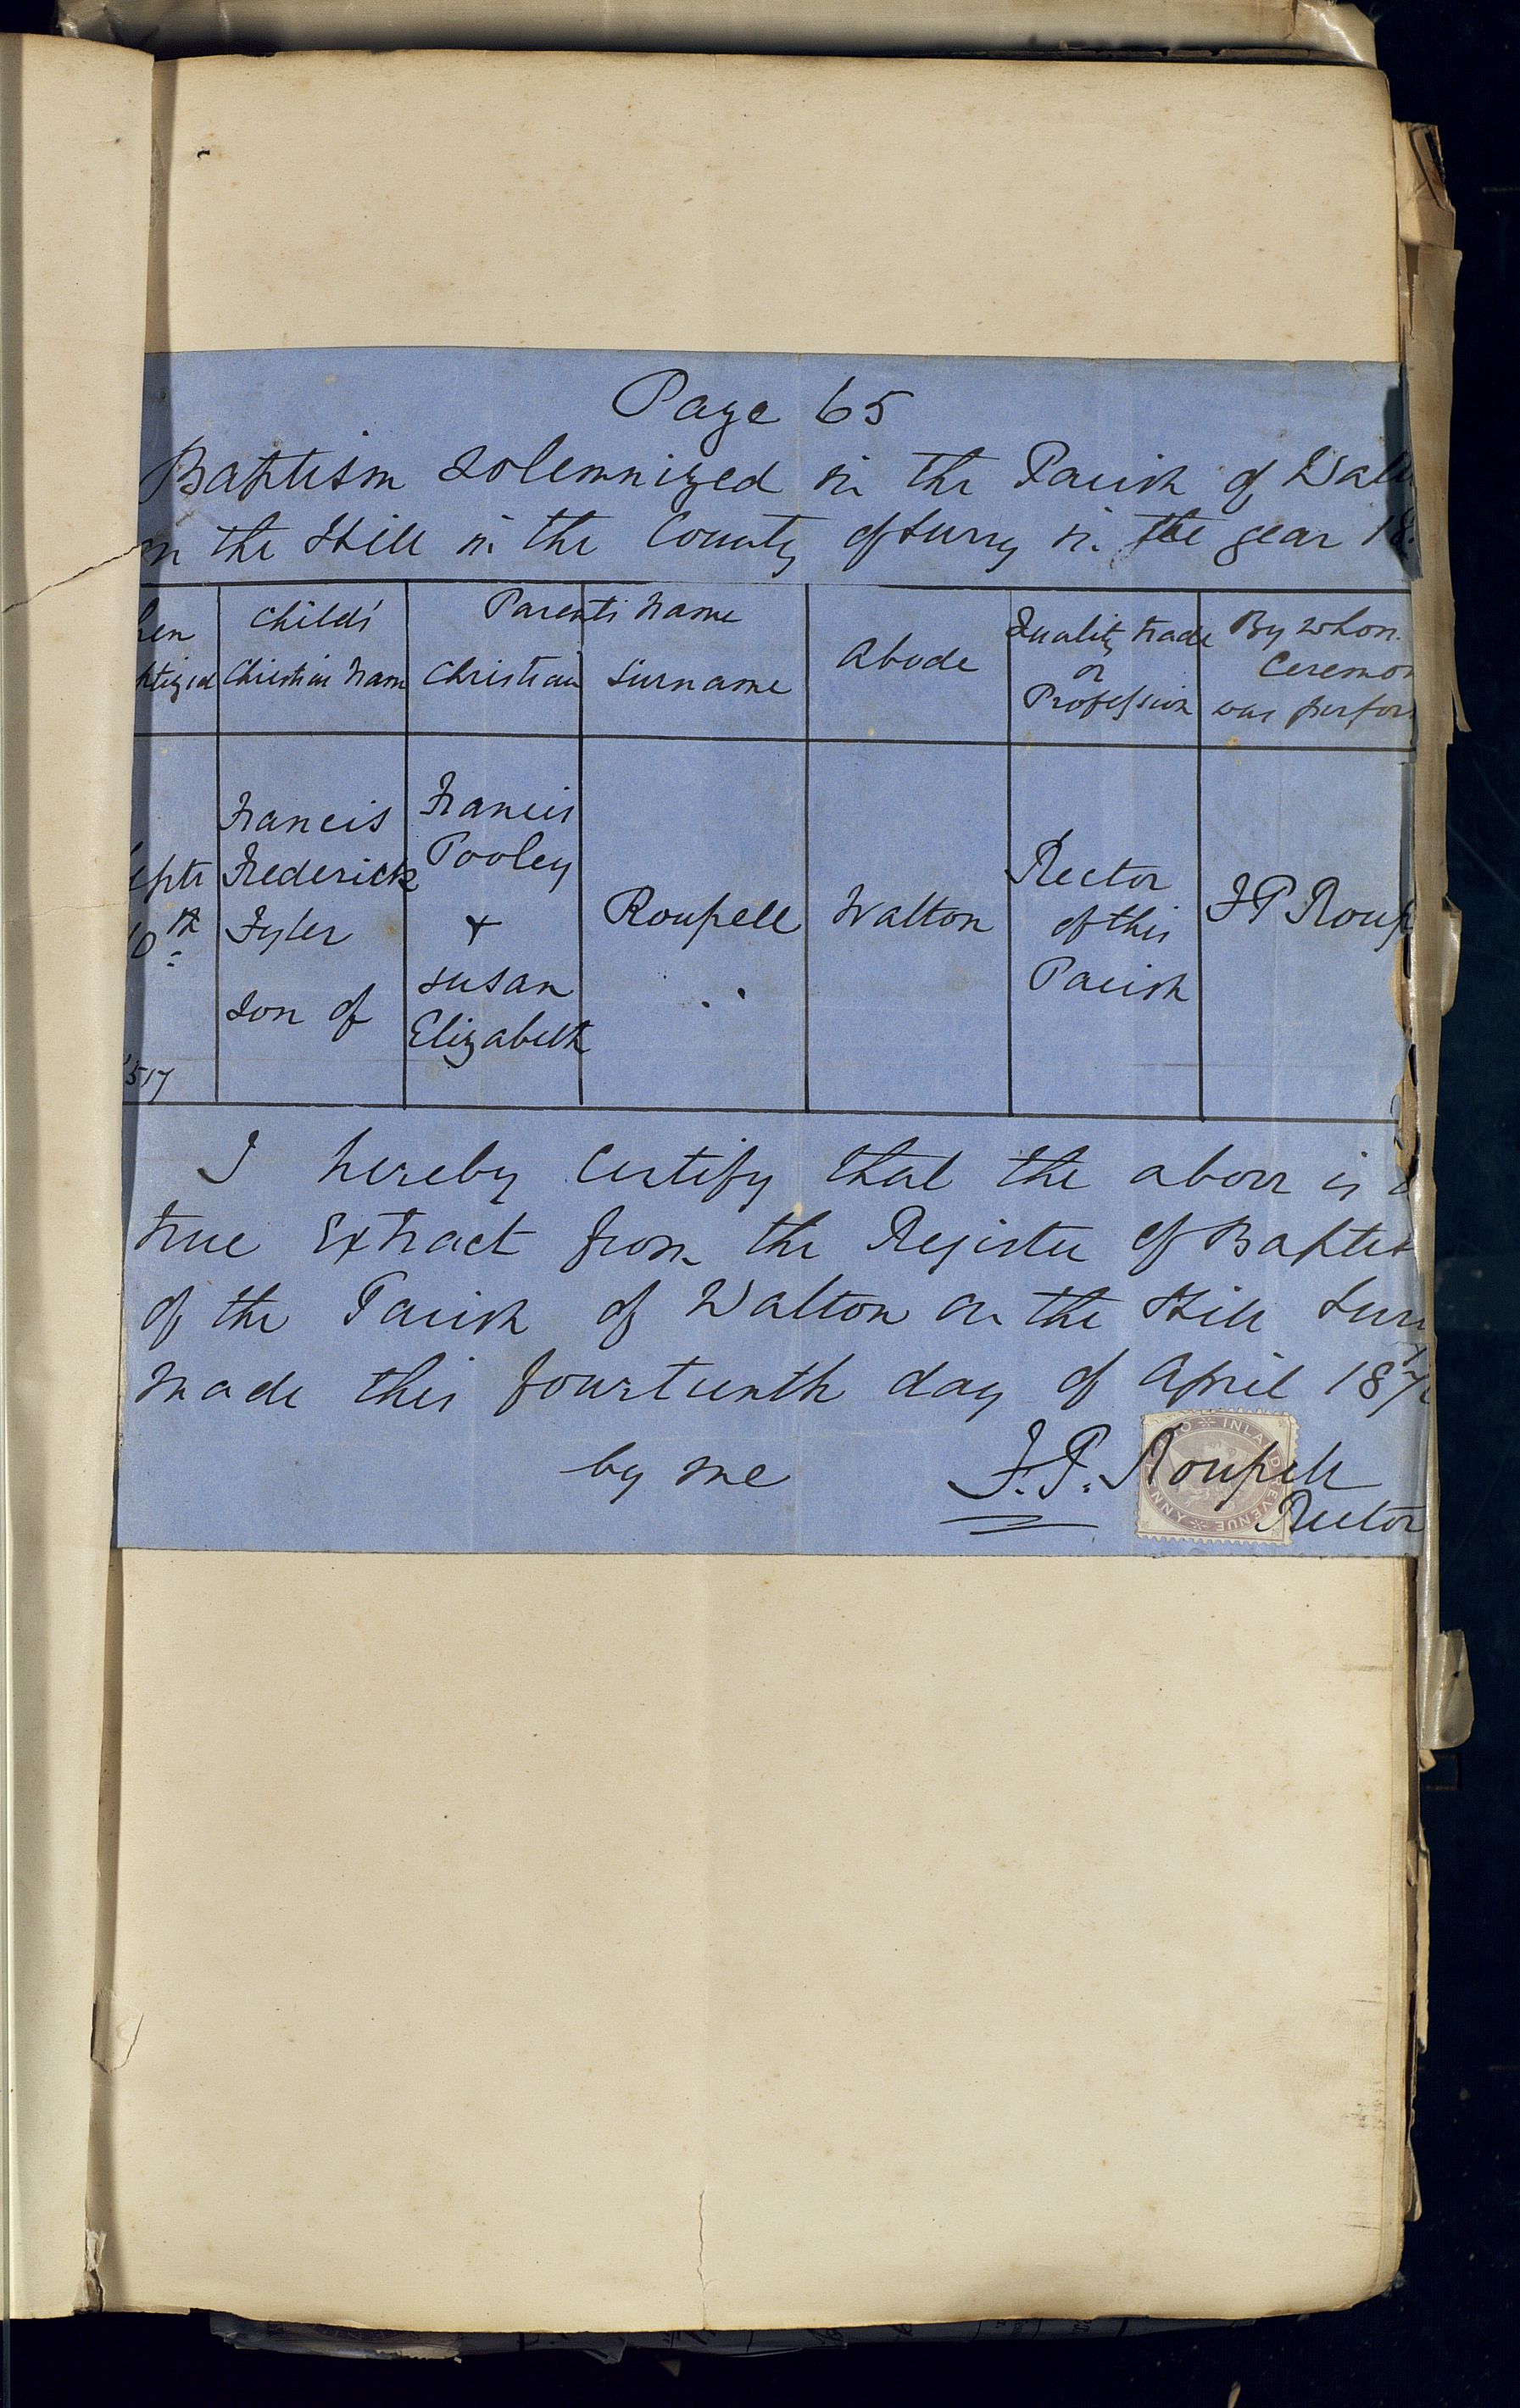 Page 65
Baptism Solemnized in the Parish of Walt
on the Hill in the County of Surry in the year 18
hen
ptized
Child's
Christian Name
Parents Name
Christian
Surname
Abode
Quality trade
or
Profession
By whom
Ceremon
was perfor
epte
10th
517
Francis
Frederick
Tyler
Son of
Francis
Pooley
+
Susan
Elizabeth
Roupell
Walton
Rector
of this
Parish
F P Roup
I hereby Certify that the above is a
true Extract from the Register of Baptis
of the Parish of Walton on the Hill Surr
made this fourteenth day of April 187
by me F. P. Roupell
Rector
INLAND REVENUE